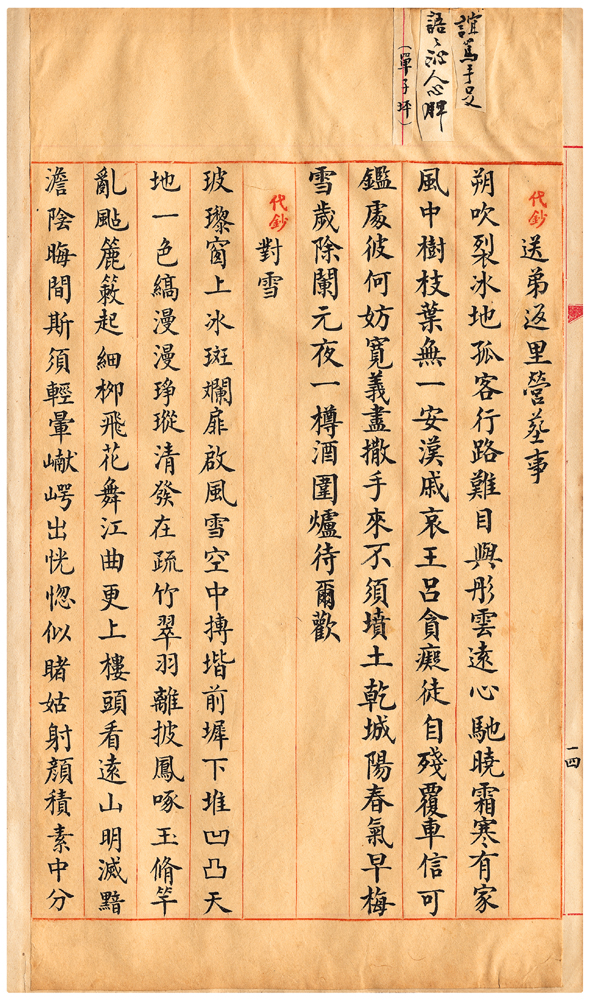 誼篤手足
語〻沁人心脾
（單子坪）
代鈔
送弟返里營塟事
朔吹裂冰地孤客行路難目與彤雲遠心馳曉霜寒有家
風中樹枝葉無一安漠戚哀王呂貪癡徒自殘覆車信可
鑑處彼何妨寬義盡撒手來不須墳土乾城陽春氣早梅
雪歲除闌元夜一樽酒圍爐待爾歡
代鈔
對雪
玻瓈窗上冰斑斕扉啟風雪空中摶堦前墀下堆凹凸天
地一色縞漫漫琤瑽清發在疏竹翠羽離披鳳啄玉脩竿
亂颭簏簌起細柳飛花舞江曲更上樓頭看遠山明滅黯
澹陰晦間斯須輕暈巘崿出恍惚似睹姑射顏積素中分
一四